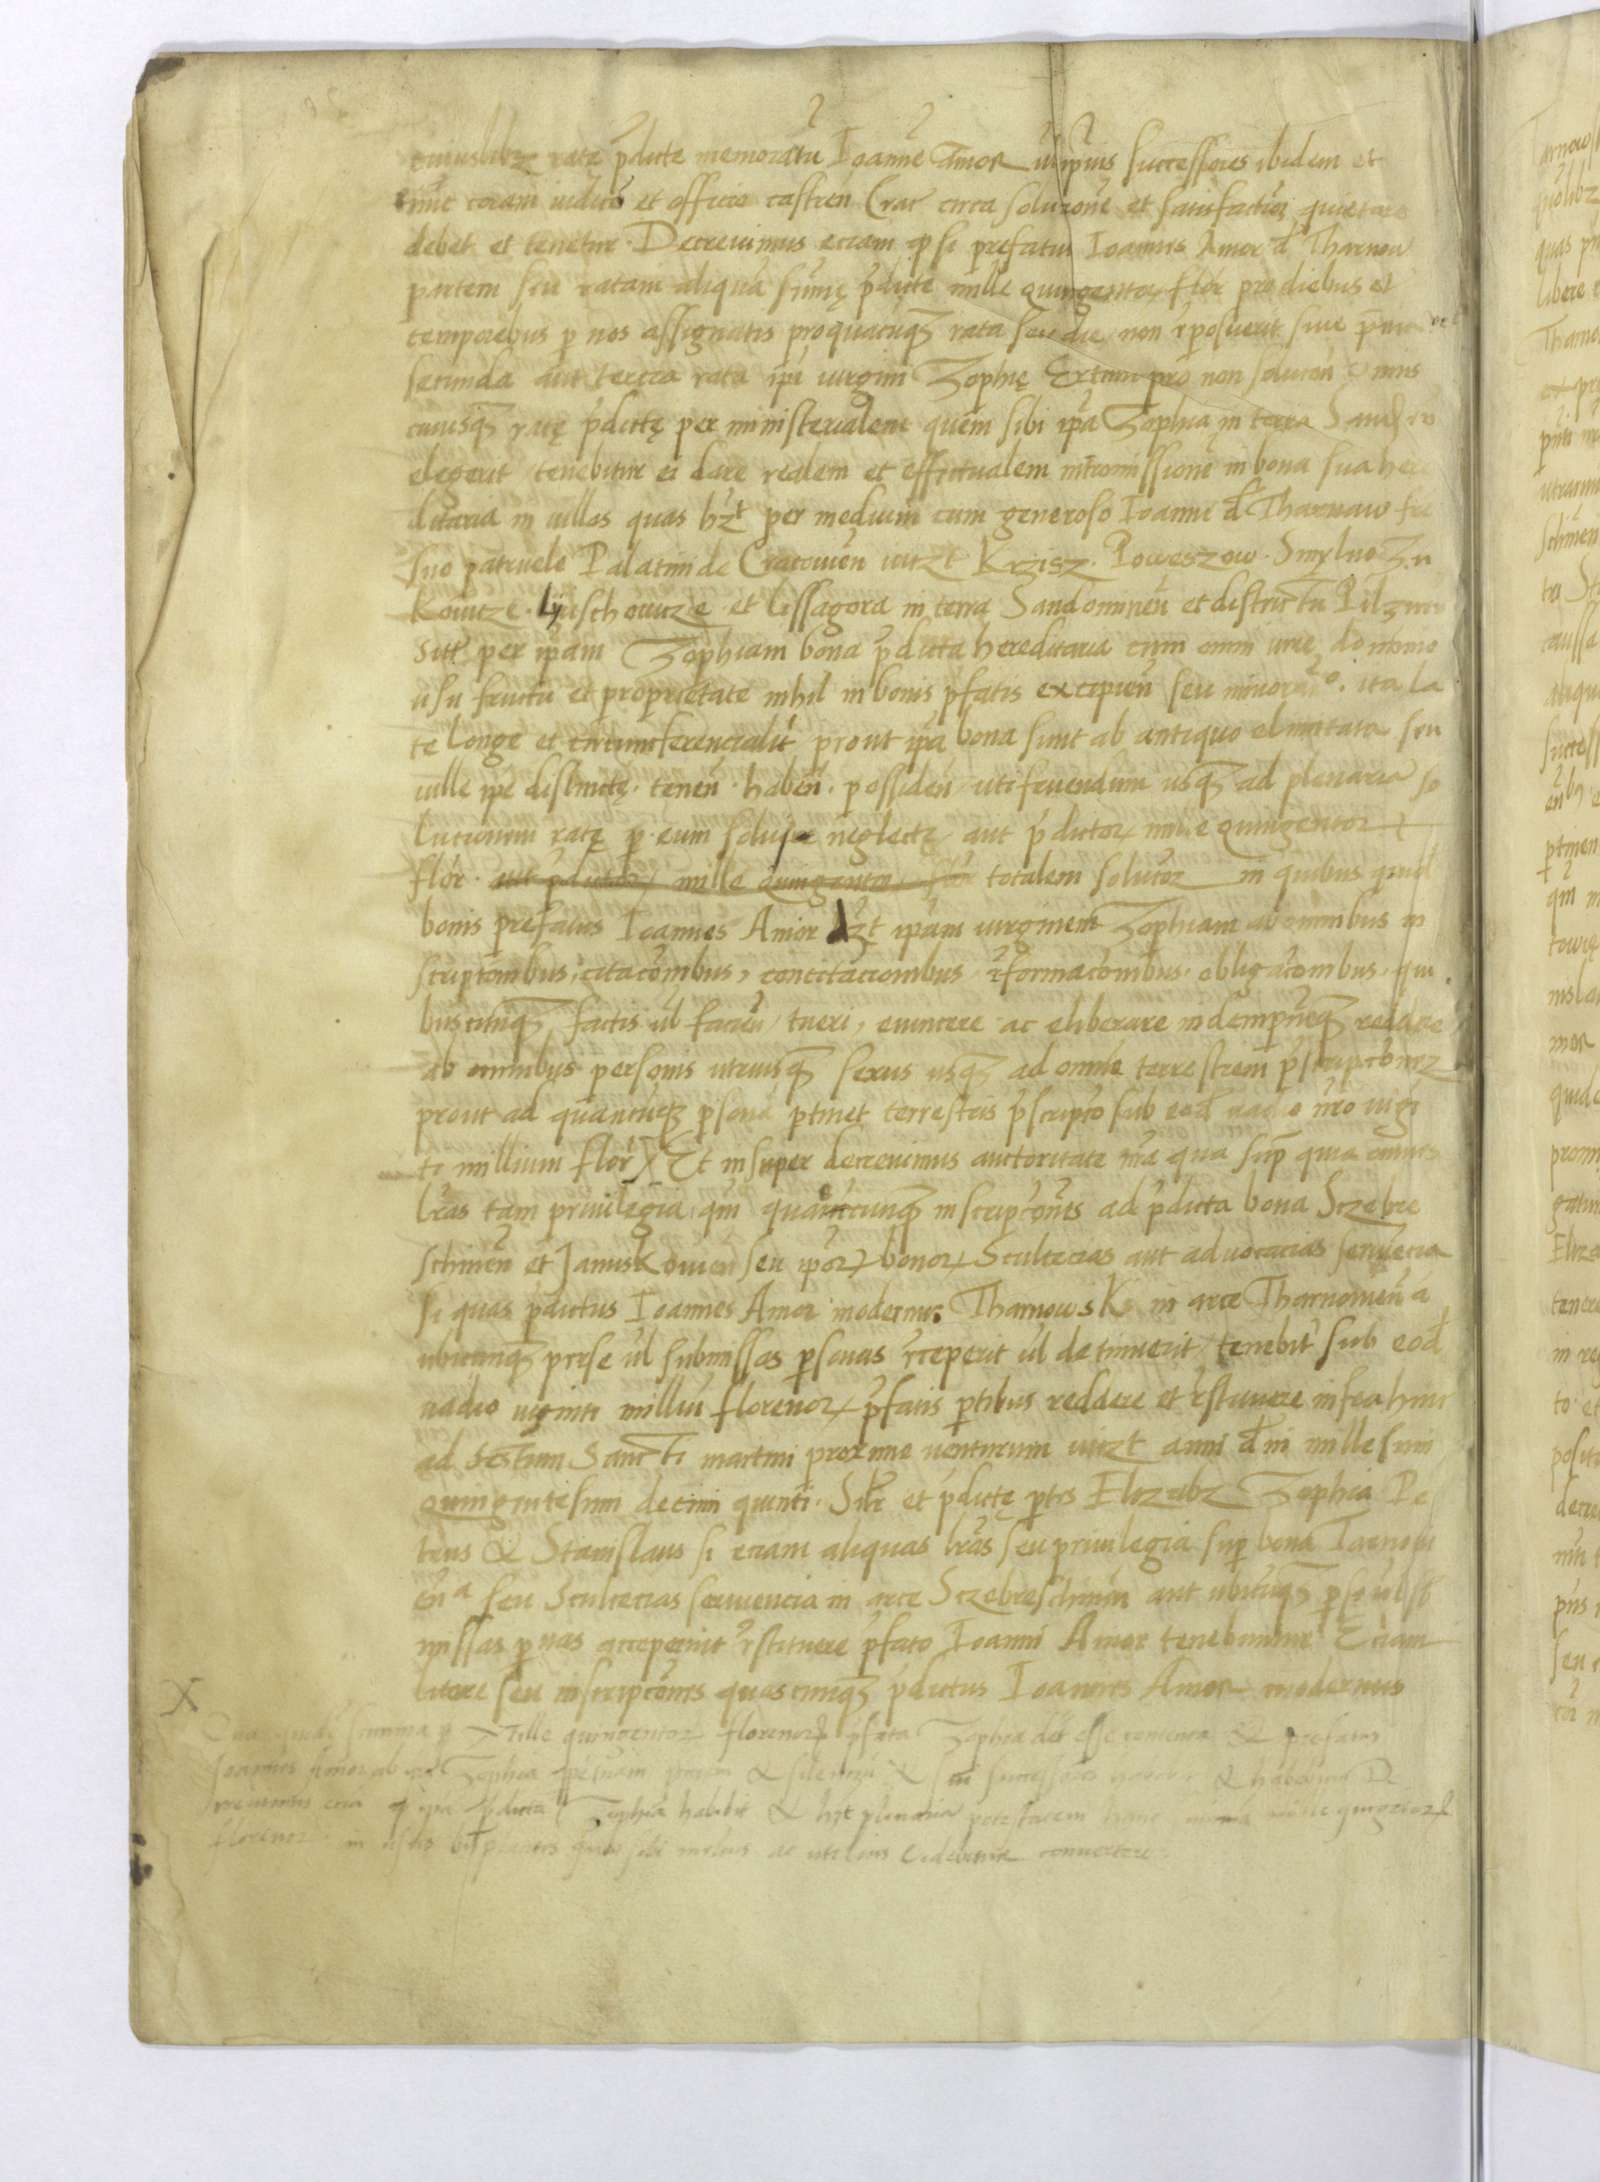 cuiuslibz ratę p̄dicte memoratū Ioannē Amor successores ibidem et
nūc coram iudicio et officio castreñ Crac̄ circa soluciōne et satisfactiōe quietare
debet et tenetur. Decreuimus eciam q̄ si prefatus Ioannes Amor d̄ Tharnow
partem seu ratam aliquā sūmę p̄dicte mille quingentor̄ flor̄ pro diebus et
temporibus p nos assignatis pro quacūq̄ rata seu die non rͤposuerit siue p̄ma vel
secunda aut tercia rata ip̄i virgini Zophię Extunc pro non soluciōe
cuiusq̄ ratę p̄dictę per ministerialem quem sibi ip̄a Zophia in terra
elegerit tenebitur ei dare realem et effectualem intromissionē in bona sua here
ditaria in villas quas hz̄t per medium cum generoso Ioanne d̄ Tharnaw fre
suo patruele Palatinide Cracouieñ vitzt Krzisz. Poweszow. Smylno Zu
kowicze. Lyuschowicze et Lissagora in terra Sandomirieñ et districtu Pilzneñ
Sitt̄ per ip̄am Zophiam bona p̄dicta hereditaria cum omni iure dominio
usu fructu et proprietate nihil in bonis p̄fatis excipieñ seu minorādo. ita la
te longe et circumferencialit̄ prout ip̄a bona sunt ab antiquo elimitata seu
ville ip̄e distincte. teneñ. habeñ. possideñ. utifruendum usq̄ ad plenariā so
lutionem ratę p eum solui neglectę aut p̄dictor̄ mille quingentor̄
flor̄. aut p̄dictor̄ mille quingentor̄ flor̄ totalem solutōe in quibus quid̄
bonis prefatus Ioannes Amor dz̄t ip̄am virginem Zophiam ab omnibus in
scriptōnibus, citatōnibus, concitacionibus rͤformacōnibus. obligacōnibus. qui
buscūnq̄ factis ūl facieñ tueri, euincere ac eliberare indempnēq̄ reddere
ab omnibus personis utriusq̄ sexus usq̄ ad omnē terrestrem p̄scriptōnez
prout ad quancūq̄ p̄sonā p̄tinet terrestris p̄scriptō sub eod̄ vadio nr̄o vigi
ti millium flor̄ X Et insuper decreuimus auctoritate nr̄a qua sup̄ quia omnes
lr̄as tam priuilegia q̄m quascunq̄ inscriptōnes ad p̄dicta bona Sczebre
schineñ et Januskowieñ seu ip̄or̄ bonor̄ Scultecias aut aduocacias seruiencia
si quas p̄dictus Ioannes Amor modernus Tharnowski in arce Tharnowieñ a
ubicunq̄ p̄ se ūl submissas p̄sonas rͤceperit ūl detinuerit tenebit̄ sub eod̄
vadio viginti milliū florenor̄ p̄fatis p̄tibus reddere et rͤstituere infra hinc
ad festum Sancti martini proxime venturum vitzt anni d̄ni millesimi
quingentesimi decimi quinti. Silr̄ et p̄dictę p̄tes Elizabz Zophia Pe
trus & Stanislaus si eciam aliquas lr̄as seu priuilegia sup̄ bona Tarnowi
eñ a seu Scultecias seruiencia in arce Sczebreschineñ aut ubicūq̄ p̄ se ūl sb̄
missas p̄sonas acceperint rͤstituere p̄fato Ioanni Amor tenebuntur Eciam
litere seu inscriptōnes quascunq̄ p̄dictus Ioannes Amor modernus
X
summa Mille quingentor̄ florenor̄ p̄fata Zophia det esse contenta & prefatus
Ioannes Amor ab Zophia & silenciū & successores
eciā q̄ ip̄a p̄dicta Zophia habebit & hz̄t plenariā potestatem hanc summā mille
florenor̄ in usus bn̄placitos sibi melius ac utilius videbitur conuertere